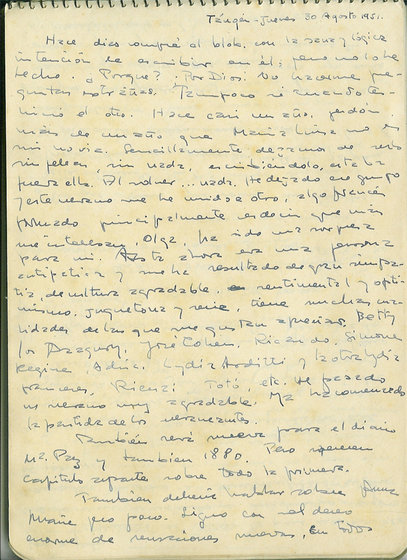 Tánger - Jueves 30 Agosto 1951.
Hace días compré el blok con la sana y lógica
intención de escribir en él; pero no lo he
hecho. ¿Porqué? ¡Por Dios! No hacerme pre-
guntas extrañas. Tampoco sé cuando ter-
minó el otro. Hace casi un año, perdón
más de un año que María Luisa no es
mi novia. Sencillamente dejamos de
sin peleas sin nada, escribiéndolo, estaba
fuera ella. Al volver... nada. He dejado
y este verano me he unido a otro, algo francés
formado principalmente es decir que más
me interesan, Olga, ha sido una sorpresa
para mí. Hasta ahora era una persona
antipática y me ha resultado de gran simpa-
tía, de cultura agradable, sentimental y opti-
mismo, juguetona y tiene muchas cua-
lidades de las que me gustan apreciar. Betty
José Cohen. Ricardo, Simone
Regine, Lydia Arditti y la otra Lydia
francesa, Toto, etc. He pasado
un verano muy agradable. Ya ha comenzado
la partida de los veraneantes.
También será nueva para el diario
Mª Paz y también 1880. Pero merecen
capítulo aparte sobre todo la primera.
También debería hablar sobre
pero poco. Sigo con el deseo
enorme de sensaciones nuevas, en todos